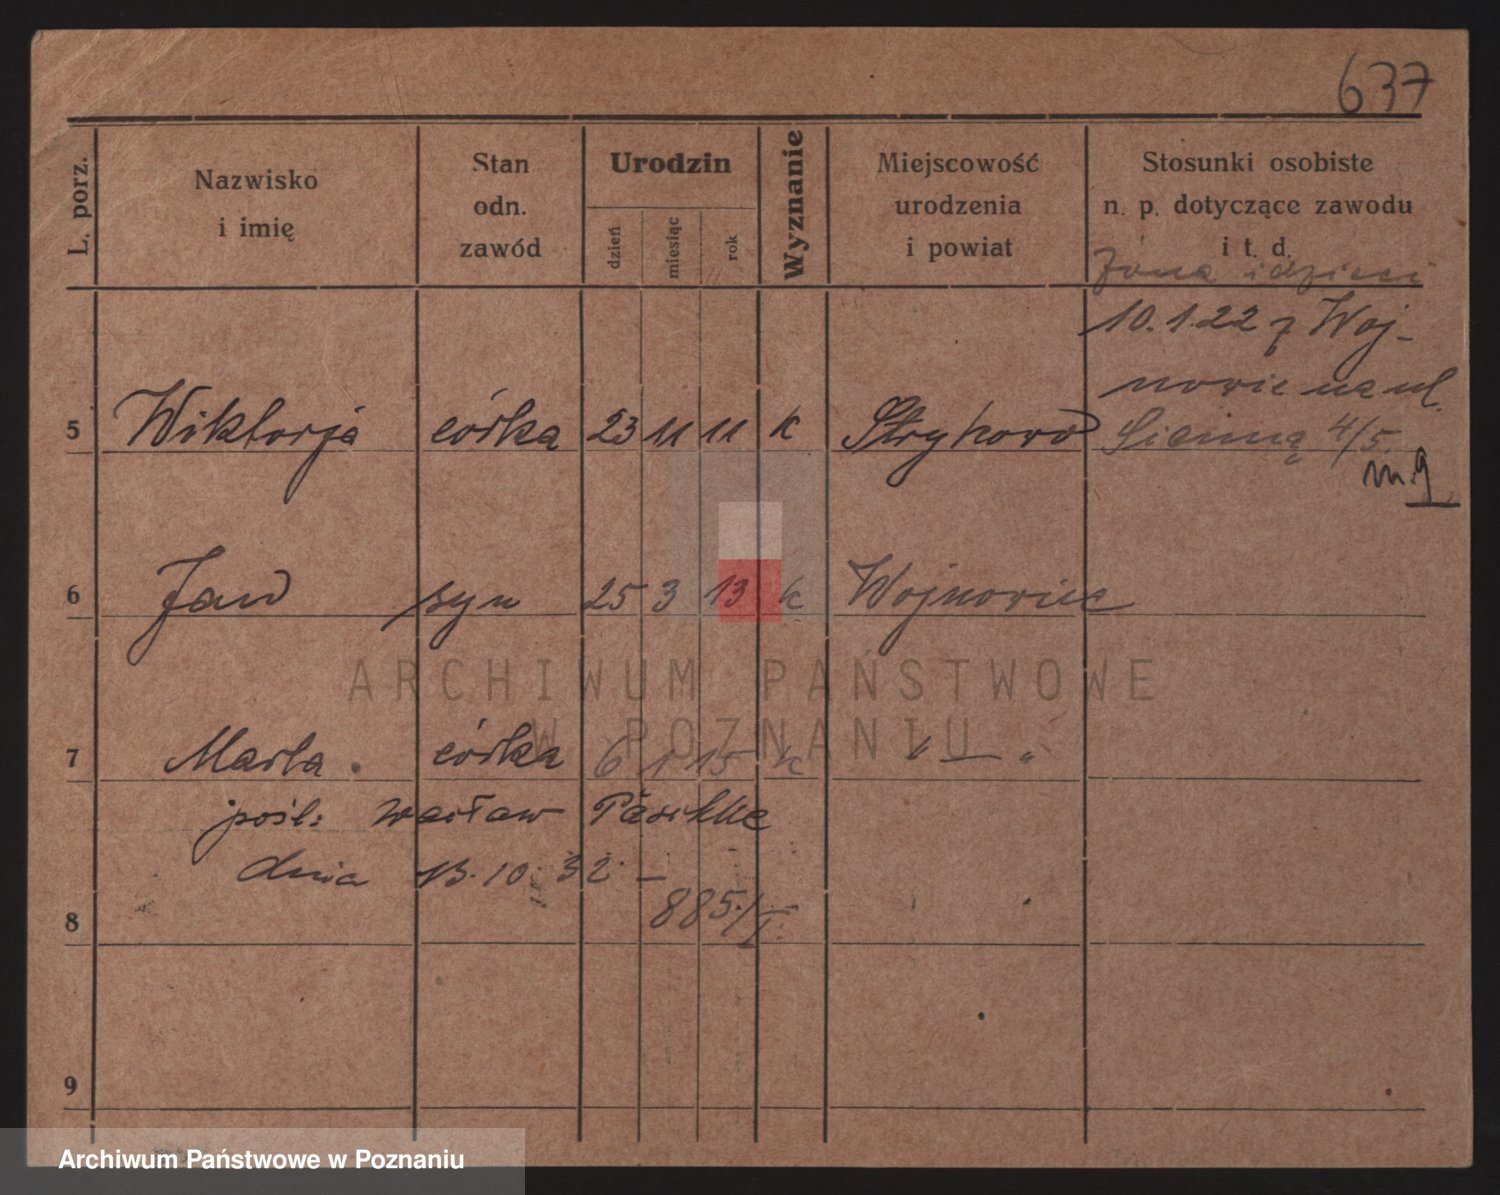 637
L. porz.
Nazwisko
i imię
Stan
odn.
zawód
Urodzin
dzień
miesiąc
rok
Wyznanie
Miejscowość
urodzenia
i powiat
Stosunki osobiste
n. p. dotyczące zawodu
i t. d.
Żona i dzieci
10.1.22 z Woj-
nowic na ul.
Sienną 4/5.
m. 9
5 Wiktorja córka 23 11 11 k Strykowo
6 Jan syn 25 3 13 k Wojnowice
ARCHIWUM PAŃSTWOWE
W POZNANIU
7 Marta córka 6 1 15 k " — "
pośl: Wacław
dnia 13.10.32 —
885./I.
8
9
Archiwum Państwowe w Poznaniu